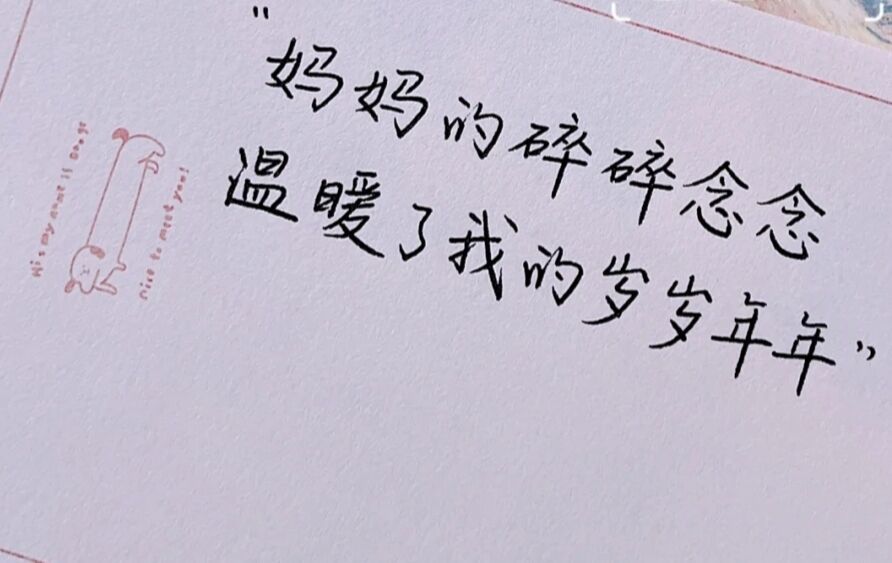 "妈妈的碎碎念念
温暖了我的岁岁年年"
Nice to meet you!